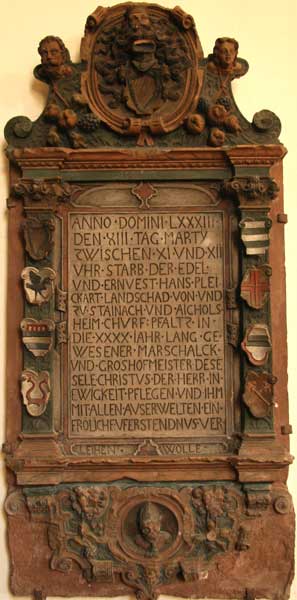 ANNO · DOMINI · LXXXIII
DEN · XIII · TAG · MARTY
ZWISCHEN · XI · VND · XII
VHR · STARB · DER · EDEL
VND · ERNVEST · HANS · PLEI
CKART · LANDSCHAD · VON · VND
ZV · STAINACH · VND · AICHOLS
HEIM · CHVRF · PFALTS · IN
DIE · XXXX · IAHR · LANG · GE
WESENER · MARSCHALCK
VND · GROSHOFMEISTER · DESE
SELE · CHRISTVS · DER · HERR · IN
EWIGKEIT · PFLEGEN · VND · IHM
MIT · ALLEN · AVSERWELTEN · EIN
FROLICH · VFERSTENDNVS · VER
LEIHEN · WOLLE ·